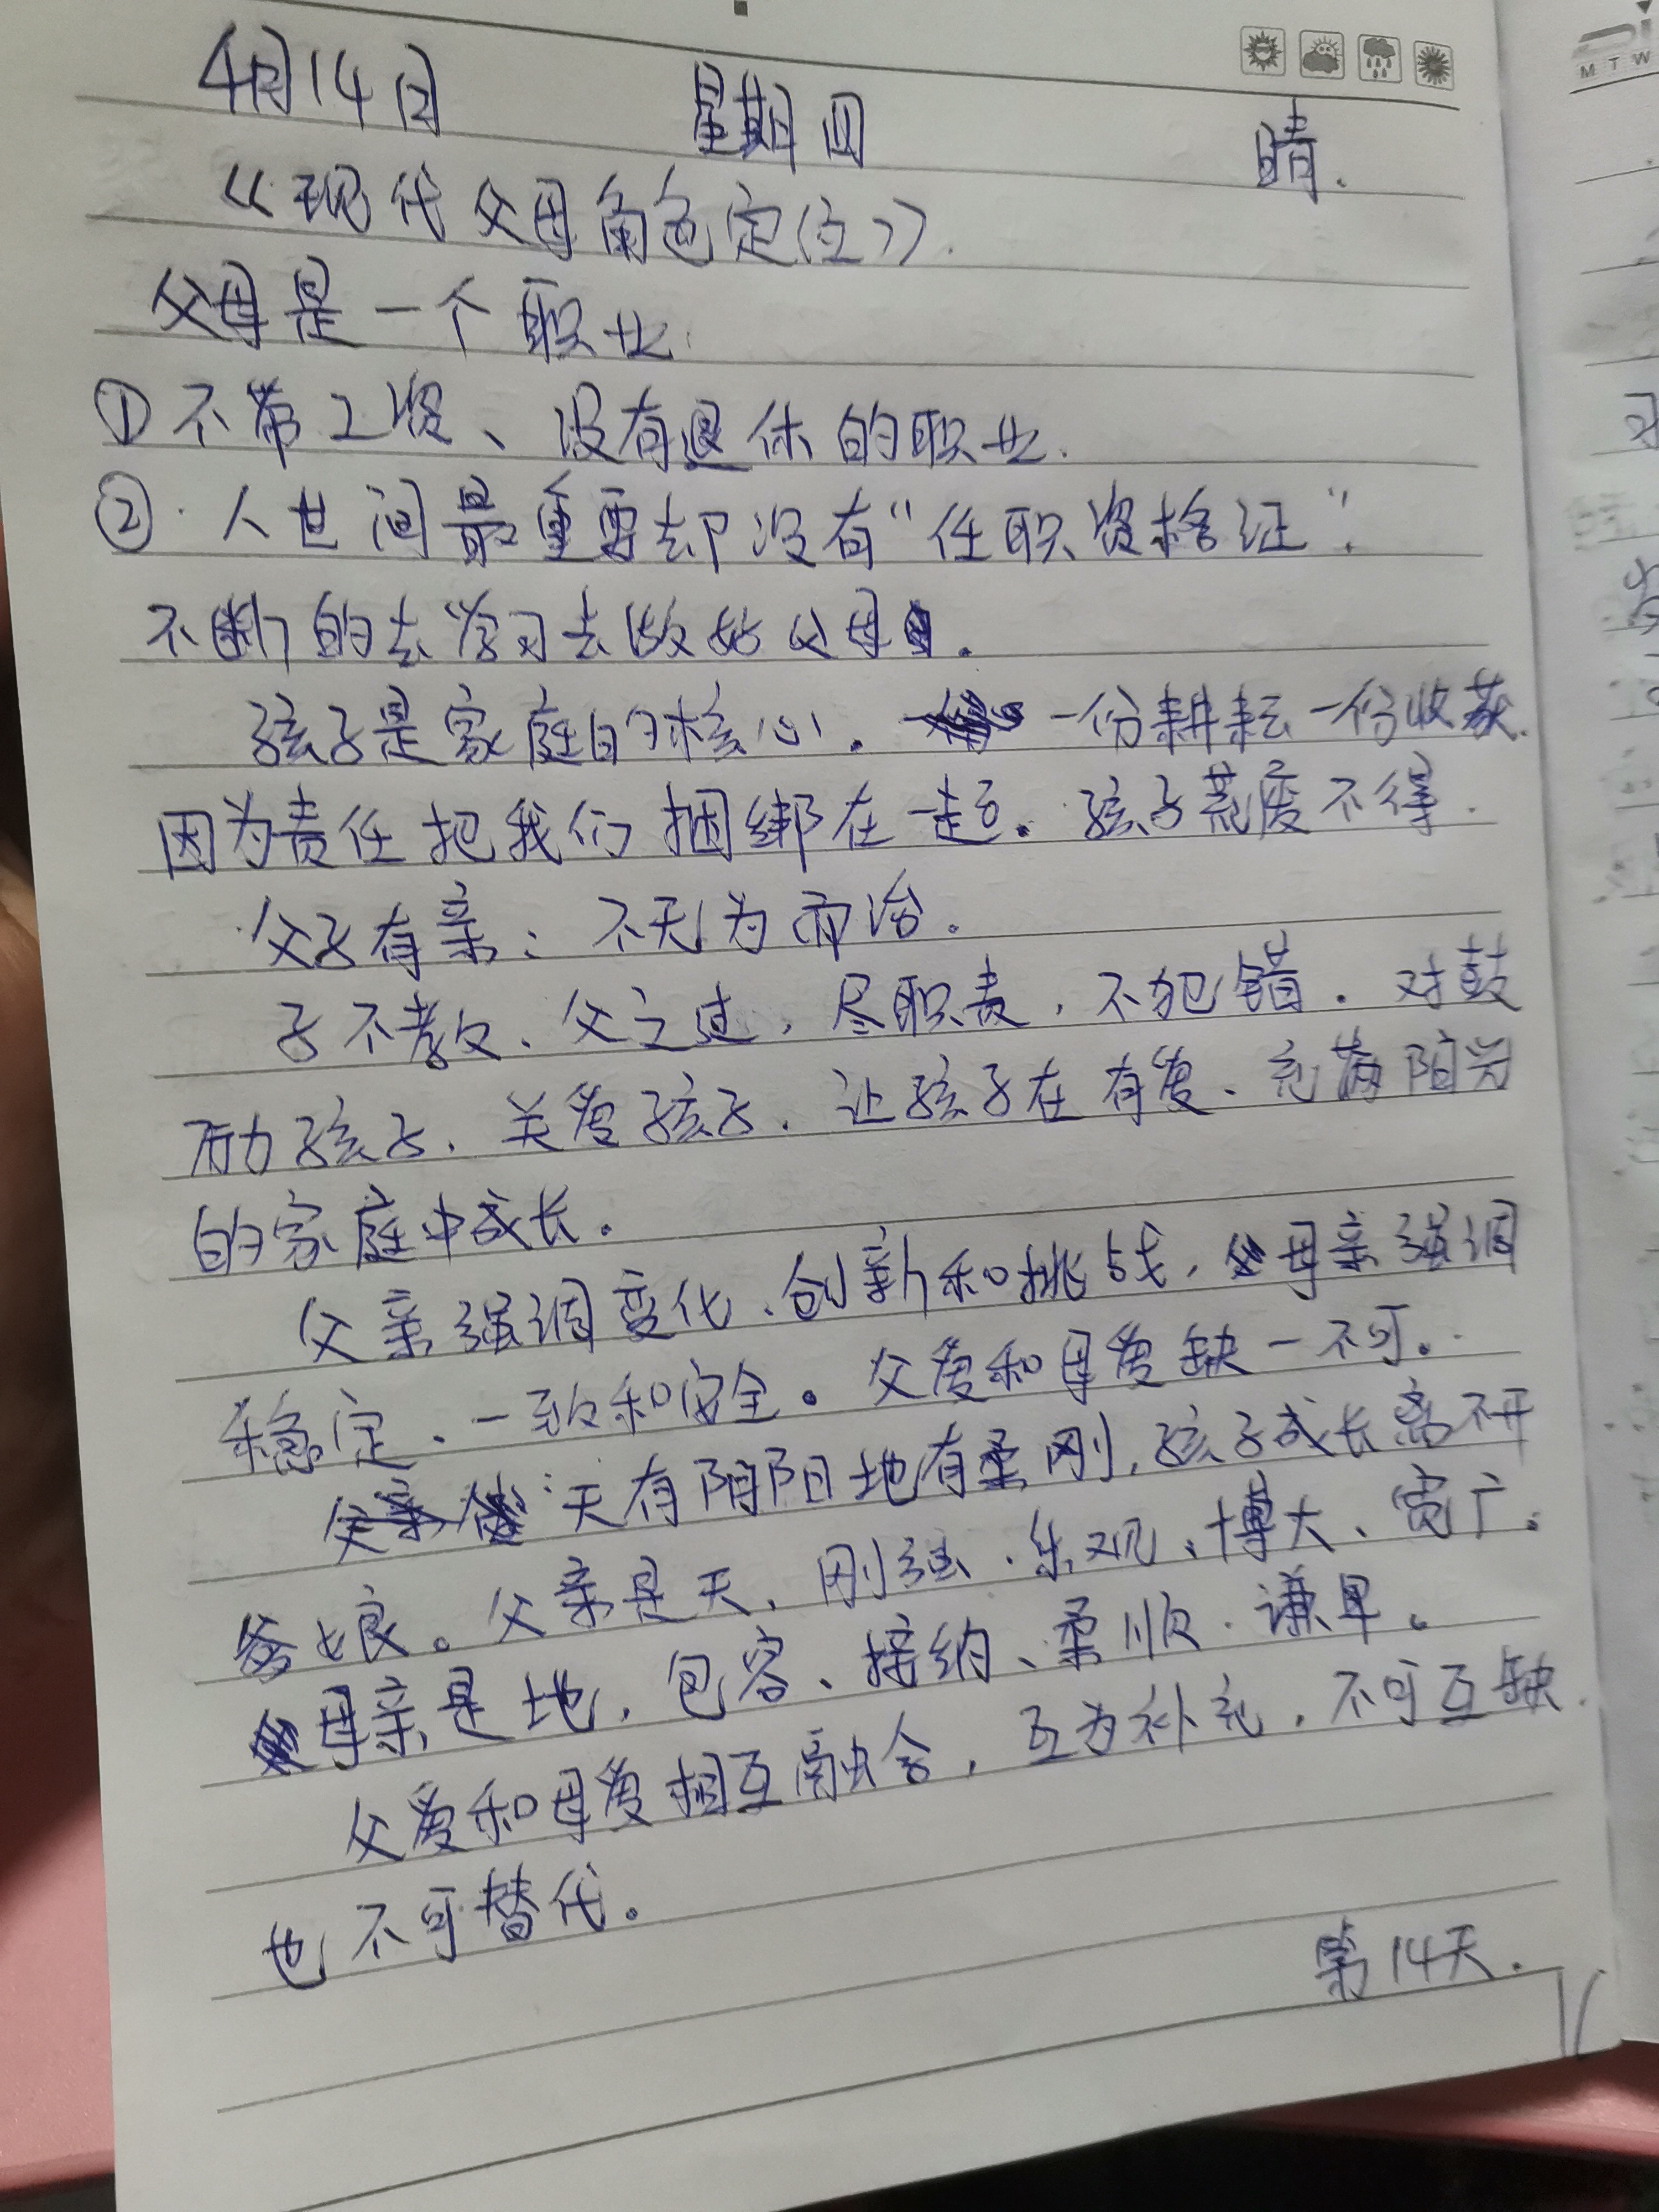 4月14日 星期四 晴.
《现代父母角色定位》.
父母是一个职业.
①不带工资、没有退休的职业.
②.人世间最重要却没有“任职资格证”.
不断的去学习去做好父母.
孩子是家庭的核心. 一份耕耘一份收获.
因为责任把我们捆绑在一起. 孩子荒废不得.
父子有亲：不无为而治.
子不教、父之过, 尽职责, 不犯错. 对鼓
励孩子、关爱孩子. 让孩子在有爱、充满阳光
的家庭中成长.
父亲强调变化、创新和挑战, 母亲强调
稳定、一致和安全。父爱和母爱缺一不可。
天有阴阳地有柔刚, 孩子成长离不开
爹娘。父亲是天, 刚强、乐观、博大、宽广。
母亲是地, 包容、接纳、柔顺、谦卑。
父爱和母爱相互融合, 互为补充, 不可互缺.
也不可替代。
第14天.
M T W